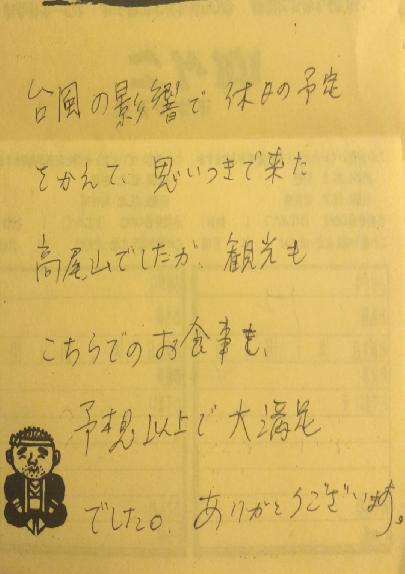 台風の影響で 休日の予定
をかえて、思いつきで来た
高尾山でしたが、観光も
こちらでのお食事も、
予想以上で大満足
でした。ありがとうございます。